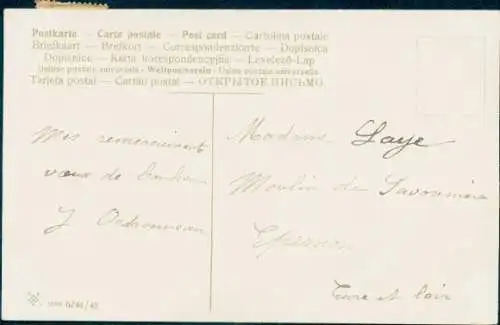 Postkarte — Carte postale — Post card — Cartolina postale
Briefkaart — Brefkort — Correspondenzkarte — Dopisnica
Dopisnice — Karta korespondencyjna — Levelező-Lap
Union postale universelle — Weltpostverein — Union postale universelle
Tarjeta postal — Cartão postal — ОТКРЫТОЕ ПИСЬМО
Mes remerciement
vœux de bonheur
J
Madame Laye
Moulin de Savonnière
Epernon
Eure et loir